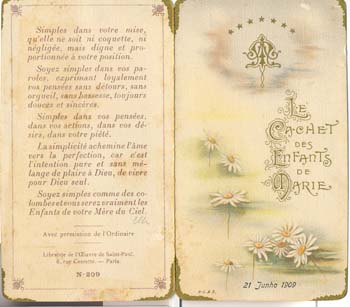 Simples dans votre mise,
qu'elle ne soit ni coquette, ni
négligée, mais digne et pro-
portionnée à votre position.
Soyez simples dans vos pa-
roles, exprimant loyalement
vos pensées sans détours, sans
orgueil, sans bassesse, toujours
douces et sincères.
Simples dans vos pensées,
dans vos actions, dans vos dé-
sirs, dans votre piété.
La simplicité achemine l'âme
vers la perfection, car c'est
l'intention pure et sans mé-
lange de plaire à Dieu, de vivre
pour Dieu seul.
Soyez simples comme des co-
lombes et vous serez vraiment les
Enfants de votre Mère du Ciel.
Avec permission de l'Ordinaire
Librairie de l'Œuvre de Saint-Paul.
6, rue Cassette. — Paris.
N· 209
LE
CACHET
DES
ENFANTS
DE
MARIE
21 Junho 1909